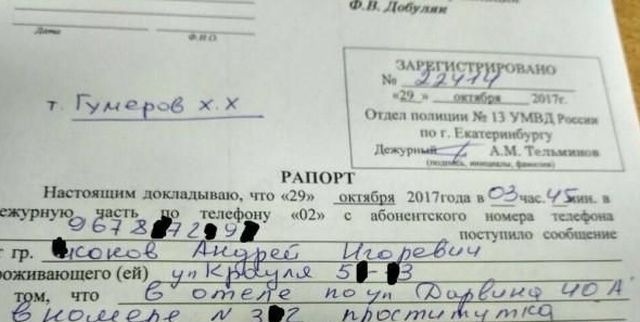 Ф.В. Добулян
Дата
Ф.И.О.
ЗАРЕГИСТРИРОВАНО
№ 22414
«29» октября 2017г.
Отдел полиции № 13 УМВД России
по г. Екатеринбургу
Дежурный А.М. Тельминов
(подпись, инициалы, фамилия)
т. Гумеров Х.Х
РАПОРТ
Настоящим докладываю, что «29» октября 2017года в 03 час. 45 мин. в
ежурную часть по телефону «02» с абонентского номера телефона
967 8 72 9 поступило сообщение
т гр. Андрей Игоревич
роживающего (ей) ул Крауля 5 - 3
том, что в отеле по ул Дарвина 40 А
в номере N 3 2 проститутка